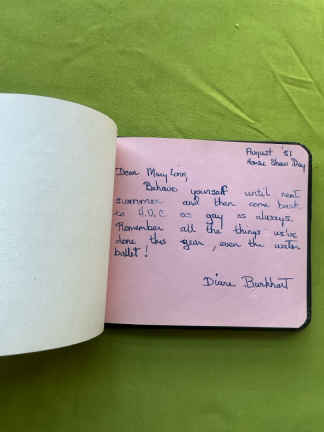 August '51
Horse Show Day
Dear Mary Lou,
Behave yourself until next
summer and then come back
to H.O.C as gay as always.
Remember all the things we've
done this year, even the water
ballet!
Diane Burkhart